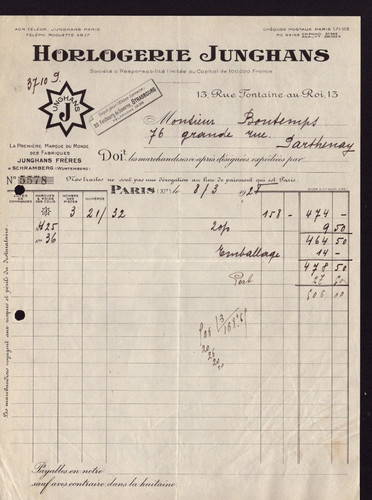 ADR. TÉLÉGR. JUNGHANS PARIS
TÉLÉPH. ROQUETTE 48.17
CHÈQUES POSTAUX PARIS 171-103
HORLOGERIE JUNGHANS
Société à Responsabilité limitée au Capital de 100.000 Francs
37.109
JUNGHANS
J
13, Rue Fontaine-au-Roi, 13
Monsieur Bontemps
76 grande rue.
Parthenay
LA PREMIÈRE MARQUE DU MONDE
DES FABRIQUES
JUNGHANS FRÈRES
À SCHRAMBERG (WURTEMBERG)
Doit les marchandises ci-après désignées expédiées par
Nos traites ne sont pas une dérogation au lieu de paiement qui est Paris.
No 5578
PARIS (XIe) le 8/3 1928
NUMÉROS
3 21/32 158 - 474 -
2% 9 50
25 464 50
36 Emballage 14 -
478 50
Port
Les marchandises voyagent aux risques et périls du destinataire
Payables en notre
sauf avis contraire dans la huitaine